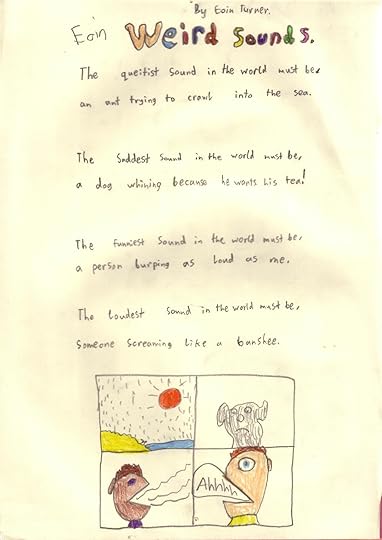 By Eoin Turner.
Eoin
Weird Sounds.
The queitist Sound in the world must be,
an ant trying to crawl into the sea.
The Saddest Sound in the world must be,
a dog whining because he wants his tea!
The funniest Sound in the world must be,
a person burping as loud as me.
The loudest Sound in the world must be,
Someone screaming like a banshee.
Ahhhh